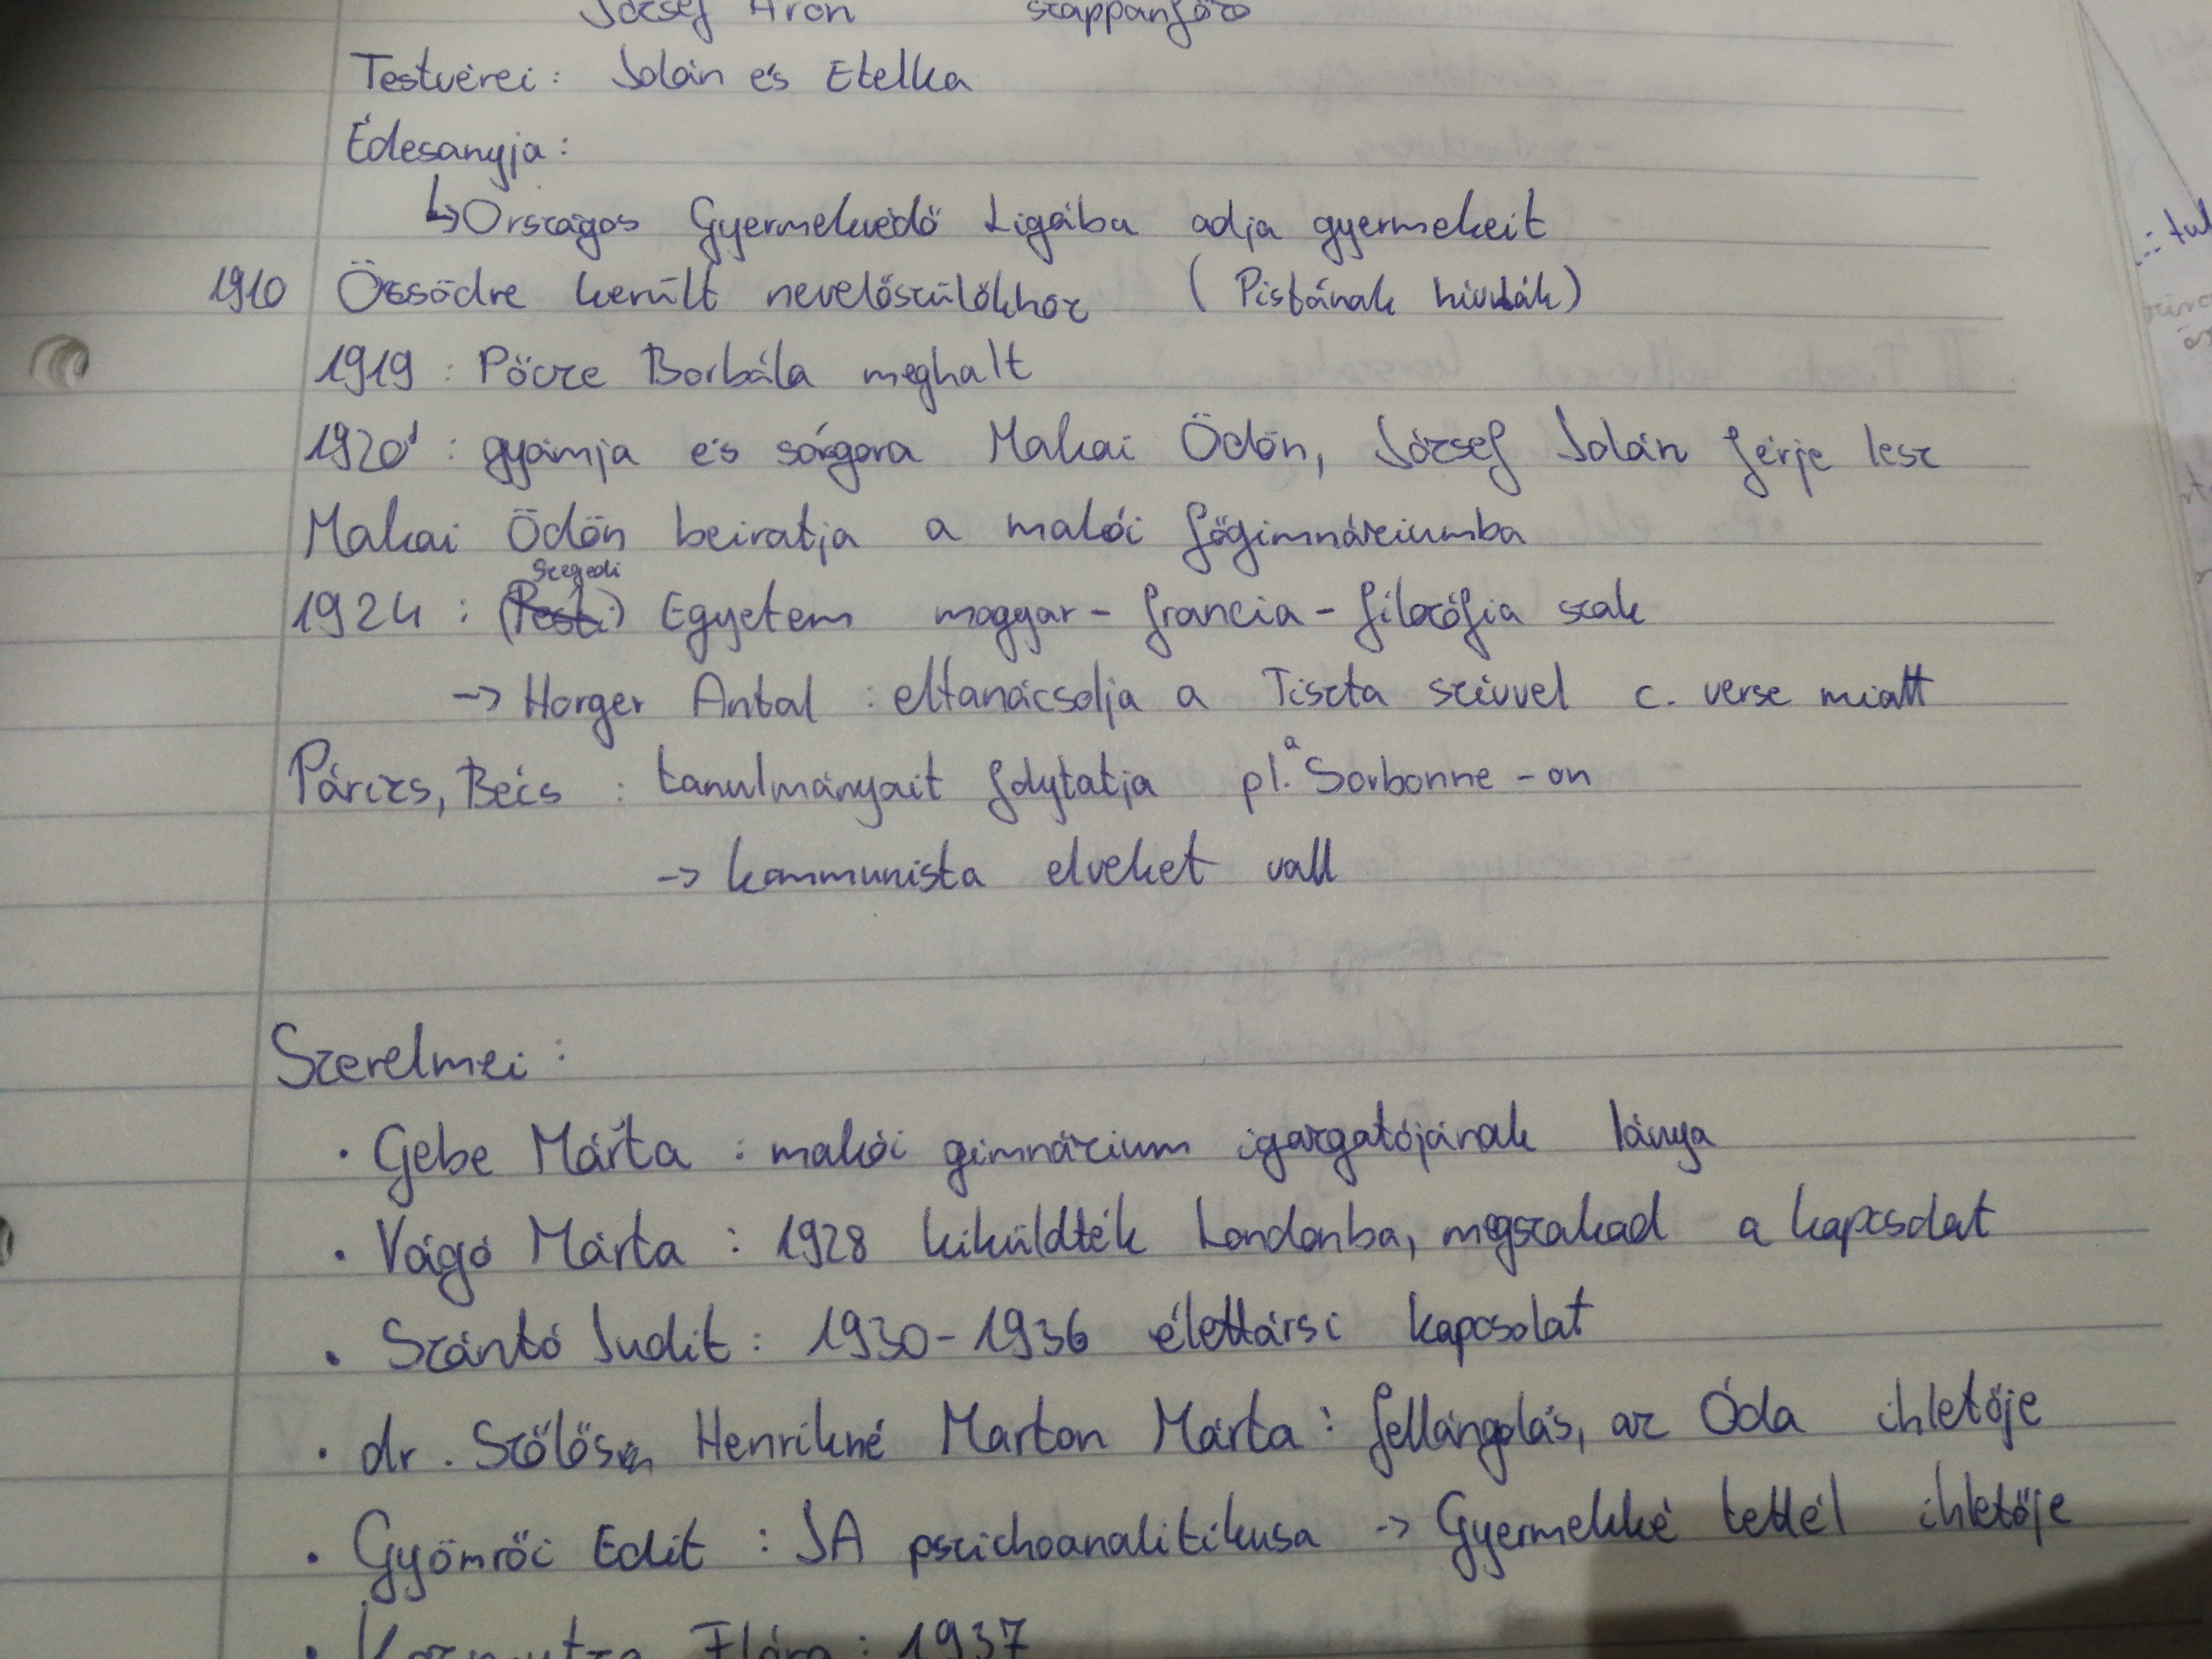 József Áron szappanfőző
Testvérei: Jolán és Etelka
Édesanyja:
↳ Országos Gyermekvédő Ligába adja gyermekeit
1910 Öcsödre került nevelőszülőkhöz (Pistának hívták)
1919: Pőcze Borbála meghalt
1920': gyámja és sógora Makai Ödön, József Jolán férje lesz
Makai Ödön beíratja a makói főgimnáziumba
Szegedi
1924: (Pesti) Egyetem magyar-francia-filozófia szak
-> Horger Antal: eltanácsolja a Tiszta szívvel c. verse miatt
Párizs, Bécs: tanulmányait folytatja pl. a Sorbonne-on
-> kommunista elveket vall
Szerelmei:
• Gebe Márta: makói gimnázium igazgatójának lánya
• Vágó Márta: 1928 kiküldték Londonba, megszakad a kapcsolat
• Szántó Judit: 1930-1936 élettársi kapcsolat
• dr. Szőlős Henrikné Marton Márta: fellángolás, az Óda ihletője
• Gyömrői Edit: JA pszichoanalitikusa -> Gyermekké tettél ihletője
• Flóra: 1937